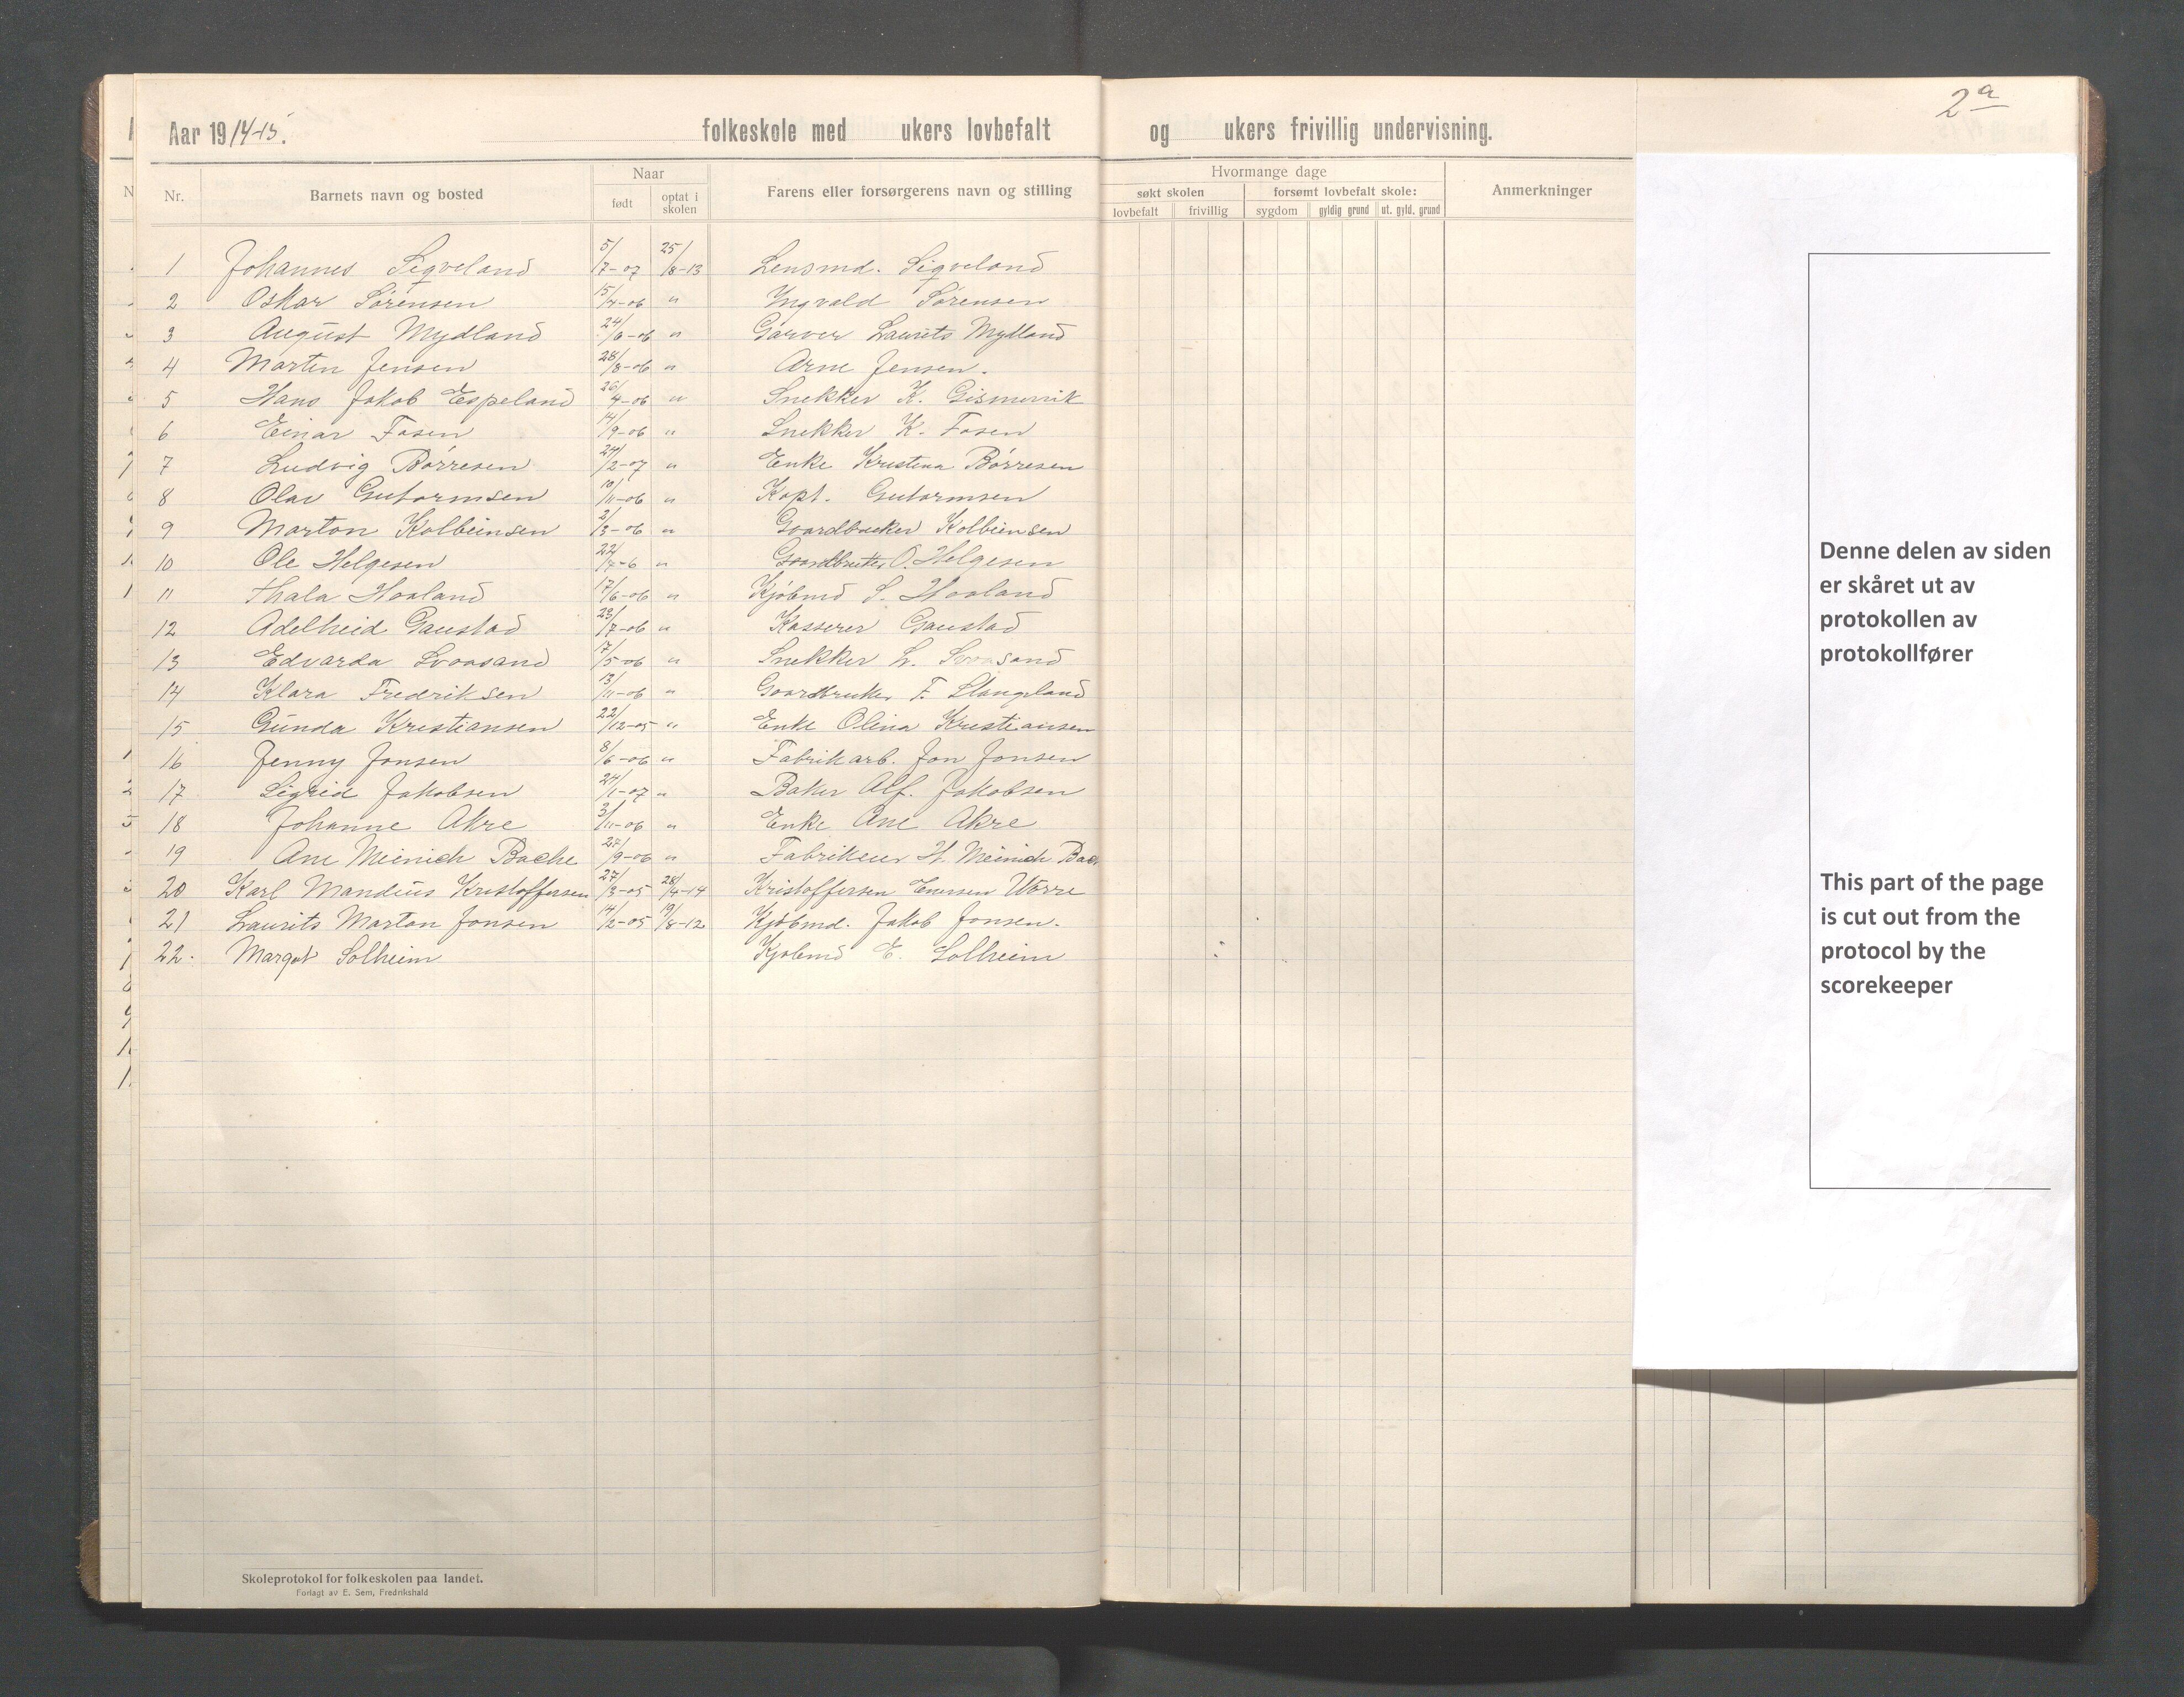 2a
Aar 1914-15. folkeskole med ukers lovbefalt og ukers frivillig undervisning.
Nr. Barnets navn og bosted Naar født optat i skolen Farens eller forsørgerens navn og stilling Hvormange dage søkt skolen lovbefalt frivillig forsømt lovbefalt skole: sygdom gyldig grund ut. gyld. grund Anmerkninger
1 Johannes Sigveland 5/7-07 25/8-13 Lensmd. Sigveland
2 Oskar Sørensen 15/4-06 " Yngvald Sørensen
3 August Mydland 24/6-06 " Garver Laurits Mydland
4 Martin Jensen 28/8-06 " Arne Jensen.
5 Hans Jakob Espeland 26/4-06 " Snekker K. Gismervik
6 Einar Fosen 14/9-06 " Snekker K. Fosen
7 Ludvig Børresen 24/2-07 " Enke Kristina Børresen
8 Olav Gutormsen 10/11-06 " Kapt. Gutormsen
9 Marton Kolbeinsen 2/3-06 " Gaardbruker Kolbeinsen
10 Ole Helgesen 22/4-6 " Gaardbruker O. Helgesen
11 Thala Haaland 17/6-06 " Kjøbmd S. Haaland
12 Adelheid Gaustad 23/7-06 " Kasserer Gaustad
13 Edvarda Svoasand 17/5-06 " Snekker L. Svoasand
14 Klara Fredriksen 13/11-06 " Gaardbruker F. Stangeland
15 Gunda Kristiansen 22/12-05 " Enke Olina Kristiansen
16 Jenny Jonsen 8/6-06 " Fabrikarb. Jon Jonsen
17 Sigrid Jakobsen 24/1-07 " Baker Alf. Jakobsen
18 Johanne Akre 3/11-06 " Enke Ane Akre
19 Ane Meinich Bache 27/9-06 " Fabrikeier H. Meinich Bach
20 Karl Mandius Kristoffersen 27/3-05 28/4-14 Kristoffersen Enersen Vorre
21 Laurits Marton Jonsen 14/2-05 19/8-12 Kjøbmd. Jakob Jonsen.
22. Margot Solheim Kjøbmd E. Solheim
Skoleprotokol for folkeskolen paa landet.
Forlagt av E. Sem, Fredrikshald
Denne delen av siden
er skåret ut av
protokollen av
protokollfører
This part of the page
is cut out from the
protocol by the
scorekeeper